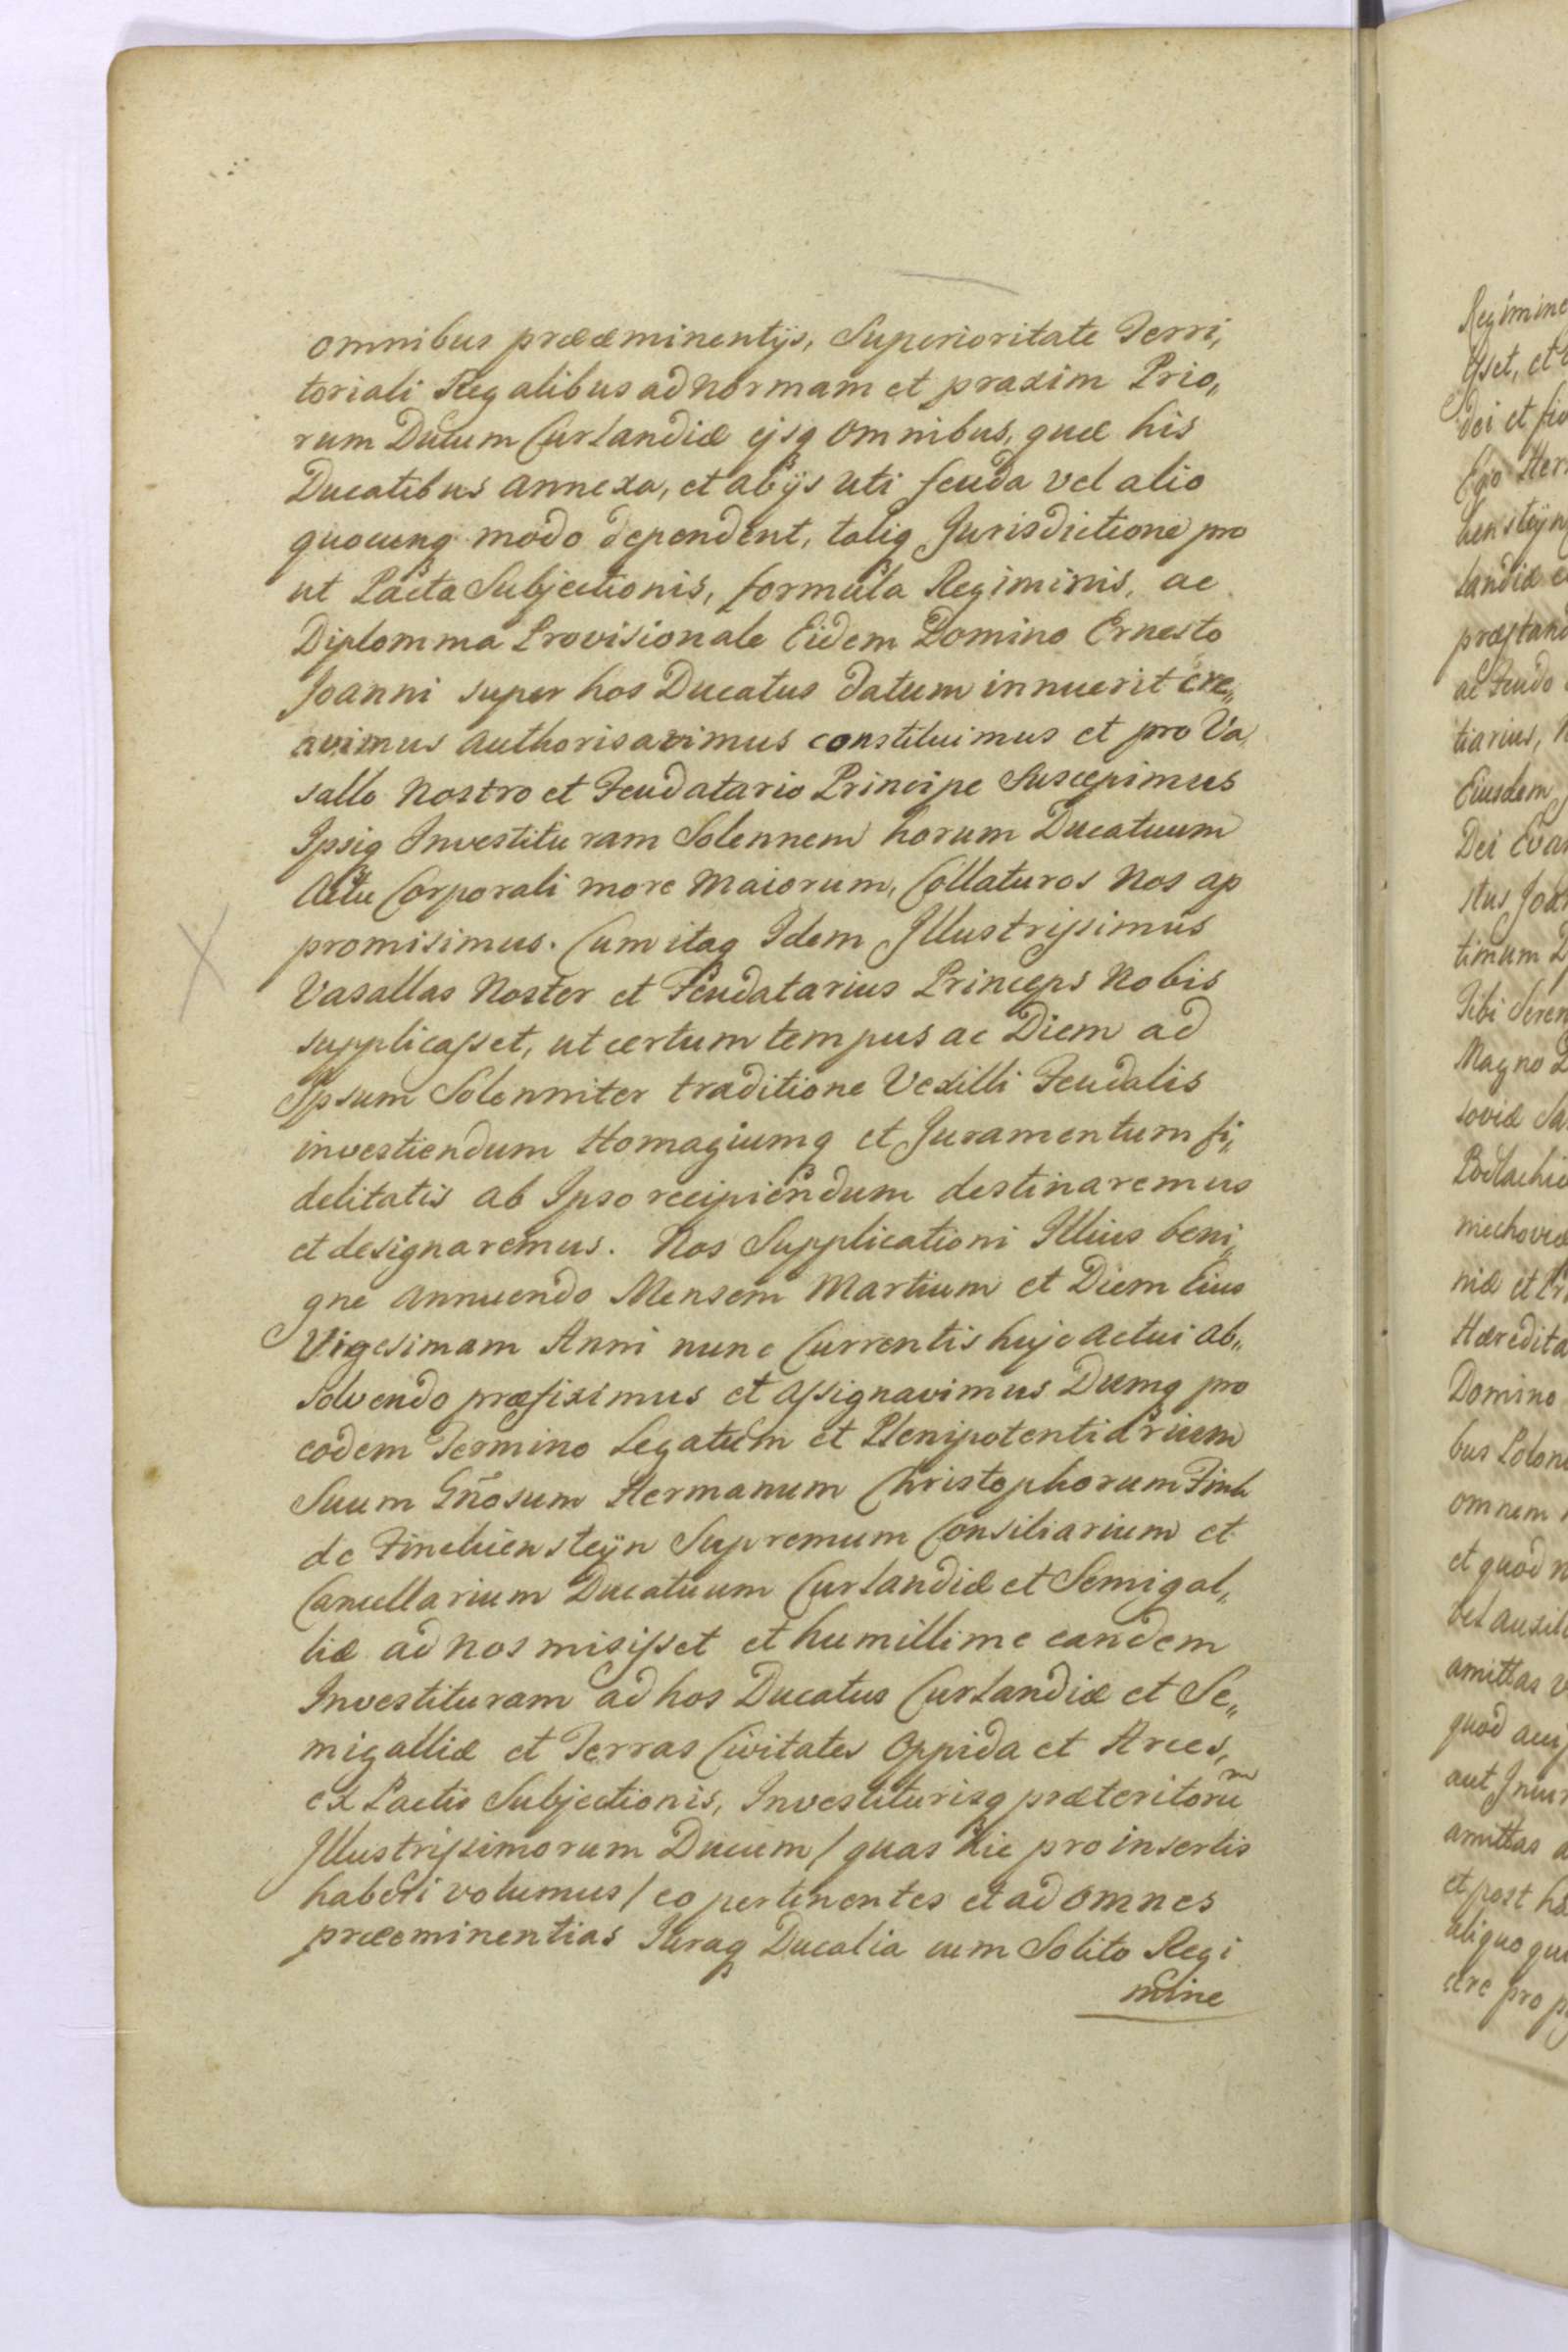 omnibus prææminentijs, Superioritate Terri„
toriali Regalibus ad normam et praxim Prio„
rum Ducum Curlandiæ ejsq omnibus, quæ his
Ducatibus annexa, et ab ijs uti feuda vel alio
quocunq modo dependent, taliq Jurisdictione pro
ut Pacta Subjectionis, formula Regiminis, ac
Diplomma Provisionale Eidem Domino Ernesto
Joanni super hos Ducatus datum innuerit cre„
avimus authorisavimus constituimus et pro Va„
sallo Nostro et Feudatario Principe Suscepimus
Ipsiq Investituram Solennem horum Ducatuum
Actu Corporali more Maiorum, Collaturos Nos ap
promisimus. Cum itaq Idem Illustrissimus
Vasallas Noster et Feudatarius Princeps Nobis
supplicasset, ut certum tempus ac Diem ad
Ipsum Solenniter traditione Vexilli Feudalis
investiendum Homagiumq et Juramentum fi„
delitatis ab Ipso recipiendum destinaremus
et designaremus. Nos Supplicationi Illius beni„
gne annuendo Mensem Martium et Diem Eius
Vigesimam Anni nunc Currentis hujc actui ab„
solvendo præfiximus et assignavimus Dumq pro
eodem Termino Legatum et Plenipotentiarium
Suum Gñosum Hermanum Christophorum Fink
de Finckiensteÿn Supremum Consiliarium et
Cancellarium Ducatuum Curlandiæ et Semigal„
liæ ad nos misisset et humillime eandem
Investituram ad hos Ducatus Curlandiæ et Se„
migalliæ et Terras Civitates Oppida et Arces,
ex Pactis Subjectionis, Investiturisq præteritorum
Illustrissimorum Ducum / quas hic pro insertis
haberi volumus / eo pertinentes et ad omnes
præeminentias Juraq Ducalia cum Solito Regi
mine
Regimine
sset, et
dei et fid
Ego Her
ckensteÿn
landiæ e
præstand
ac Feudo
tiarius,
Eiusdem
Dei Evan
stus Joan
timum
Tibi Seren
Magno
soviæ Sa
Podlachi
niechoviæ
niæ et
Hæredita
Domino
bus Polon
omnem
et quod n
vel auxili
amittas
quod
aut
amittas
et post ha
aliquo
ere pro